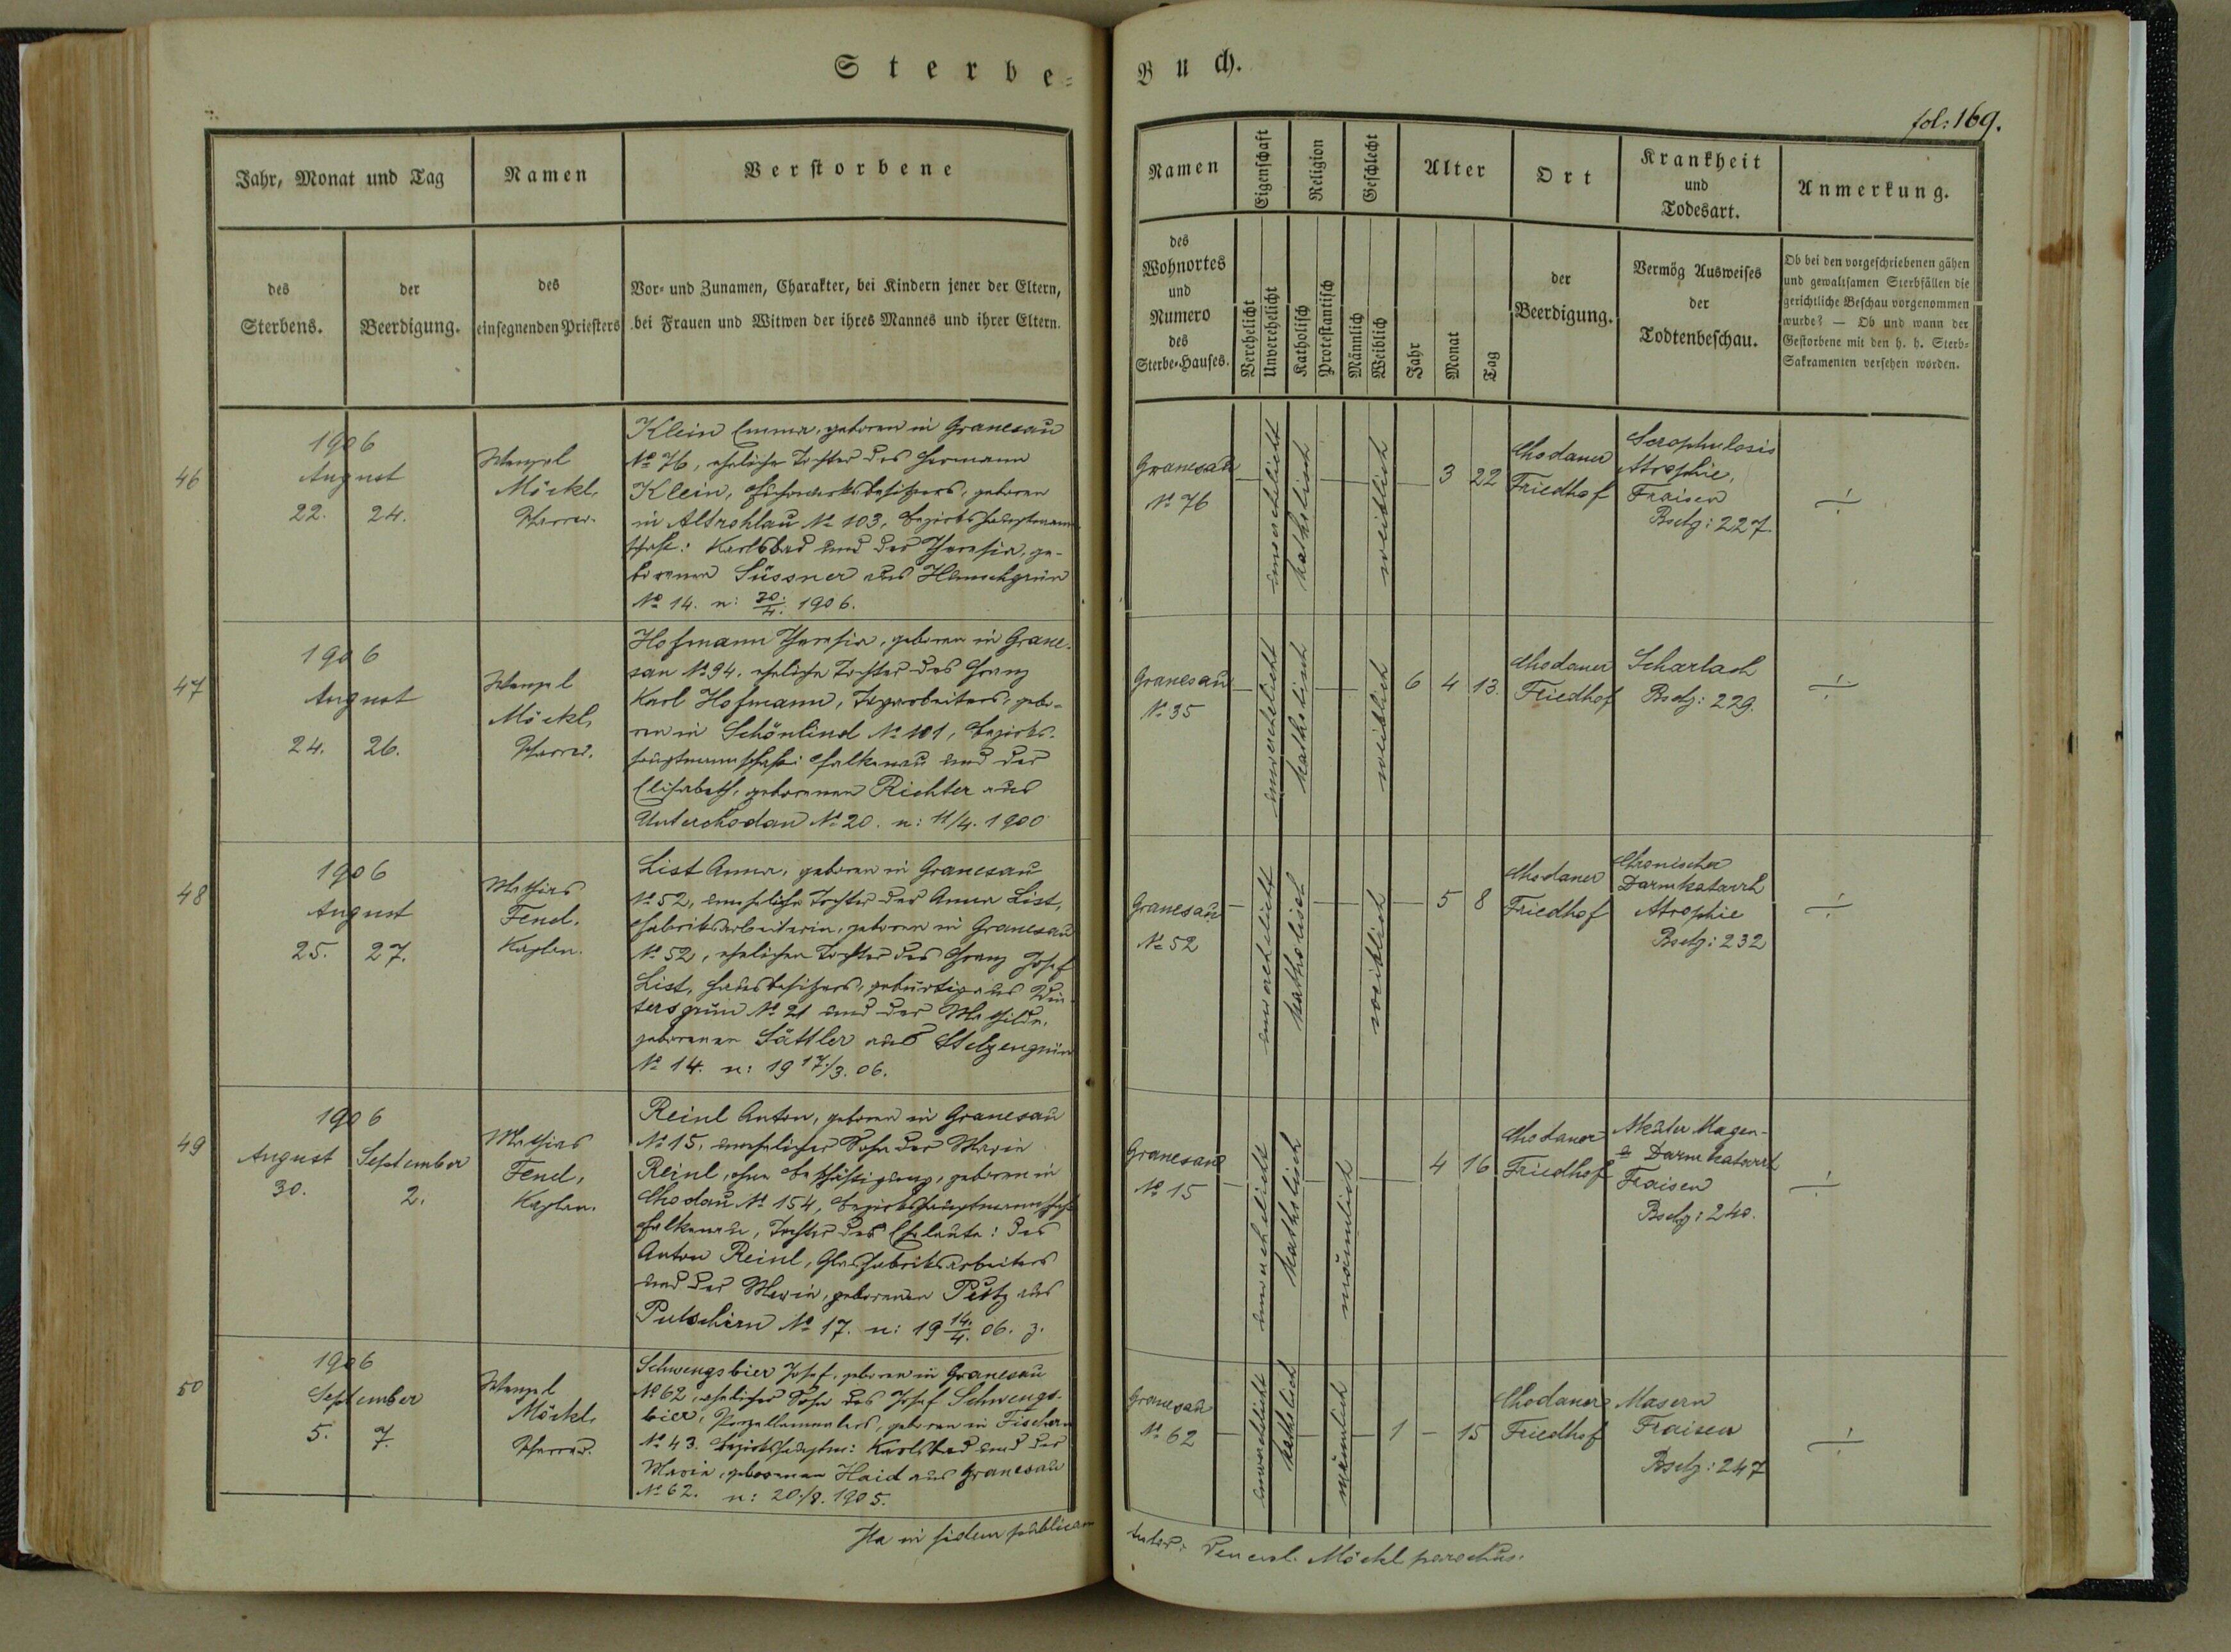 Sterbe=
Buch.
fol: 169.
Jahr, Monat und Tag
Namen
Verstorbene
des
Sterbens.
der
Beerdigung.
des
einsegnenden Priesters
Vor- und Zunamen, Charakter, bei Kindern jener der Eltern,
bei Frauen und Witwen der ihres Mannes und ihrer Eltern.
Namen
Eigenschaft
Religion
Geschlecht
Alter
Ort
Krankheit
und
Todesart.
Anmerkung.
des
Wohnortes
und
Numero
des
Sterbe-Hauses.
Verehelicht
Unverehelicht
Katholisch
Protestantisch
Männlich
Weiblich
Jahr
Monat
Tag
der
Beerdigung.
Vermög Ausweises
der
Todtenbeschau.
Ob bei den vorgeschriebenen gähen
und gewaltsamen Sterbfällen die
gerichtliche Beschau vorgenommen
wurde? — Ob und wann der
Gestorbene mit den h. h. Sterb=
Sakramenten versehen worden.
46
1906
August
22. 24.
Wenzel
Möckl,
Pfarrer.
Klein Emma, geboren in Granesau
No 76, eheliche Tochter des Hermann
Klein, Fuhrwerksbesitzers, geboren
in Altrohlau No 103, Bezirkshauptmann-
schaft: Karlsbad und der Theresia, ge-
borenen Süssner aus
No 14. n: 30./4. 1906.
Granesau
No 76
unverehelicht
katholisch
weiblich
3 22
Chodauer
Friedhof
Scrophulosis
Atrophie,
Fraisen
Bsctg: 227.
47
1906
August
24. 26.
Wenzel
Möckl,
Pfarrer.
Hofmann Theresia, geboren in Grane-
sau No 94, eheliche Tochter des Franz
Karl Hofmann, gebo-
ren in Schönlind No 101, Bezirks-
hauptmannschaft: Falkenau und der
Elisabeth, geborenen Richter aus
Unterchodau No 20. n: 11/4. 1900
Granesau
No 35
unverehelicht
katholisch
weiblich
6 4 13.
Chodauer
Friedhof
Scharlach
Bsctg: 229.
48
1906
August
25. 27.
Mathias
Fend,
Kaplan.
List Anna, geboren in Granesau
No 52, uneheliche Tochter der Anna List,
Fabriksarbeiterin, geboren in Granesau
No 52, ehelichen Tochter des Franz Josef
List, Hausbesitzers, gebürtig aus Win-
tersgrün No 21 und der Mathilde,
geborenen Sättler aus Stelzengrün
No 14. n: 19 17/3. 06.
Granesau
No 52
unverehelicht
katholisch
weiblich
5 8
Chodauer
Friedhof
Chronischer
Darmkatarrh
Atrophie
Bsctg: 232
49
1906
August September
30. 2.
Mathias
Fend,
Kaplan.
Reinl Anton, geboren in Granesau
No 15, unehelicher Sohn der Maria
Reinl, ohne Beschäftigung, geboren in
Chodau No 154, Bezirkshauptmannschaft
Falkenau, Tochter der Eheleute: des
Anton Reinl, Glasfabriksarbeiters
und der Maria, geborenen Pürtz aus
Putschirn No 17. n: 19 14./4. 06. z.
Granesau
No 15
unverehelicht
katholisch
männlich
4 16
Chodauer
Friedhof
Akuter Magen-
& Darmkatarrh
Fraisen
Bsctg: 240.
50
1906
September
5. 7.
Wenzel
Möckl,
Pfarrer.
Schwengsbier Josef, geboren in Granesau
No 62, ehelicher Sohn des Josef Schwengs-
bier, Porzellanmalers, geboren in Fischern
No 43. Bezirkshauptm: Karlsbad und der
Maria, geborenen Haid aus Granesau
No 62. n: 20./8. 1905.
Granesau
No 62
unverehelicht
katholisch
männlich
1 – 15
Chodauer
Friedhof
Masern
Fraisen
Bsctg: 247
Ita in fidem publicam
Wencesl. Möckl parochus.